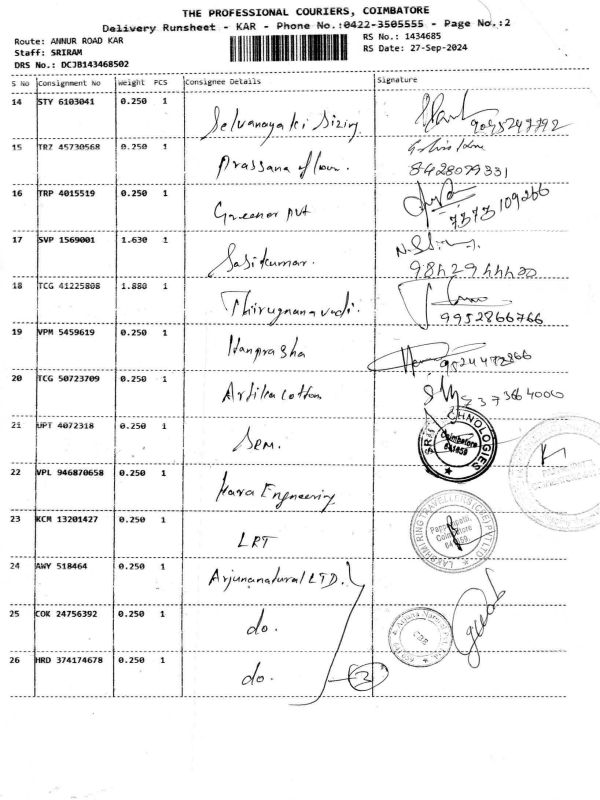 THE PROFESSIONAL COURIERS, COIMBATORE
Delivery Runsheet - KAR - Phone No.:0422-3505555 - Page No.:2
Route: ANNUR ROAD KAR
Staff: SRIRAM
DRS No.: DCJB143468502
RS No.: 1434685
RS Date: 27-Sep-2024
S No Consignment No Weight PCS Consignee Details Signature
14 STY 6103041 0.250 1
Selvanayaki Sizing
15 TRZ 45730568 0.250 1
Prassana flour.
8428079331
16 TRP 4015519 0.250 1
Greenor pvt
7373109266
17 SVP 1569001 1.630 1
Sasikumar.
18 TCG 41225808 1.880 1
Thirugnanavadi.
9952866766
19 VPM 5459619 0.250 1
Hanprasha
9524472866
20 TCG 50723709 0.250 1
Artika cotton
7373664000
21 UPT 4072318 0.250 1
Sem.
SRI TECHNOLOGIES
Coimbatore
641659
22 VPL 946870658 0.250 1
Hara Engineering
23 KCM 13201427 0.250 1
LRT
LAKSHMI RING TRAVELLERS (CBE) PVT LTD
Coimbatore
24 AWY 518464 0.250 1
Arjunanatural LTD.
25 COK 24756392 0.250 1
do.
26 HRD 374174678 0.250 1
do.
3
CBE